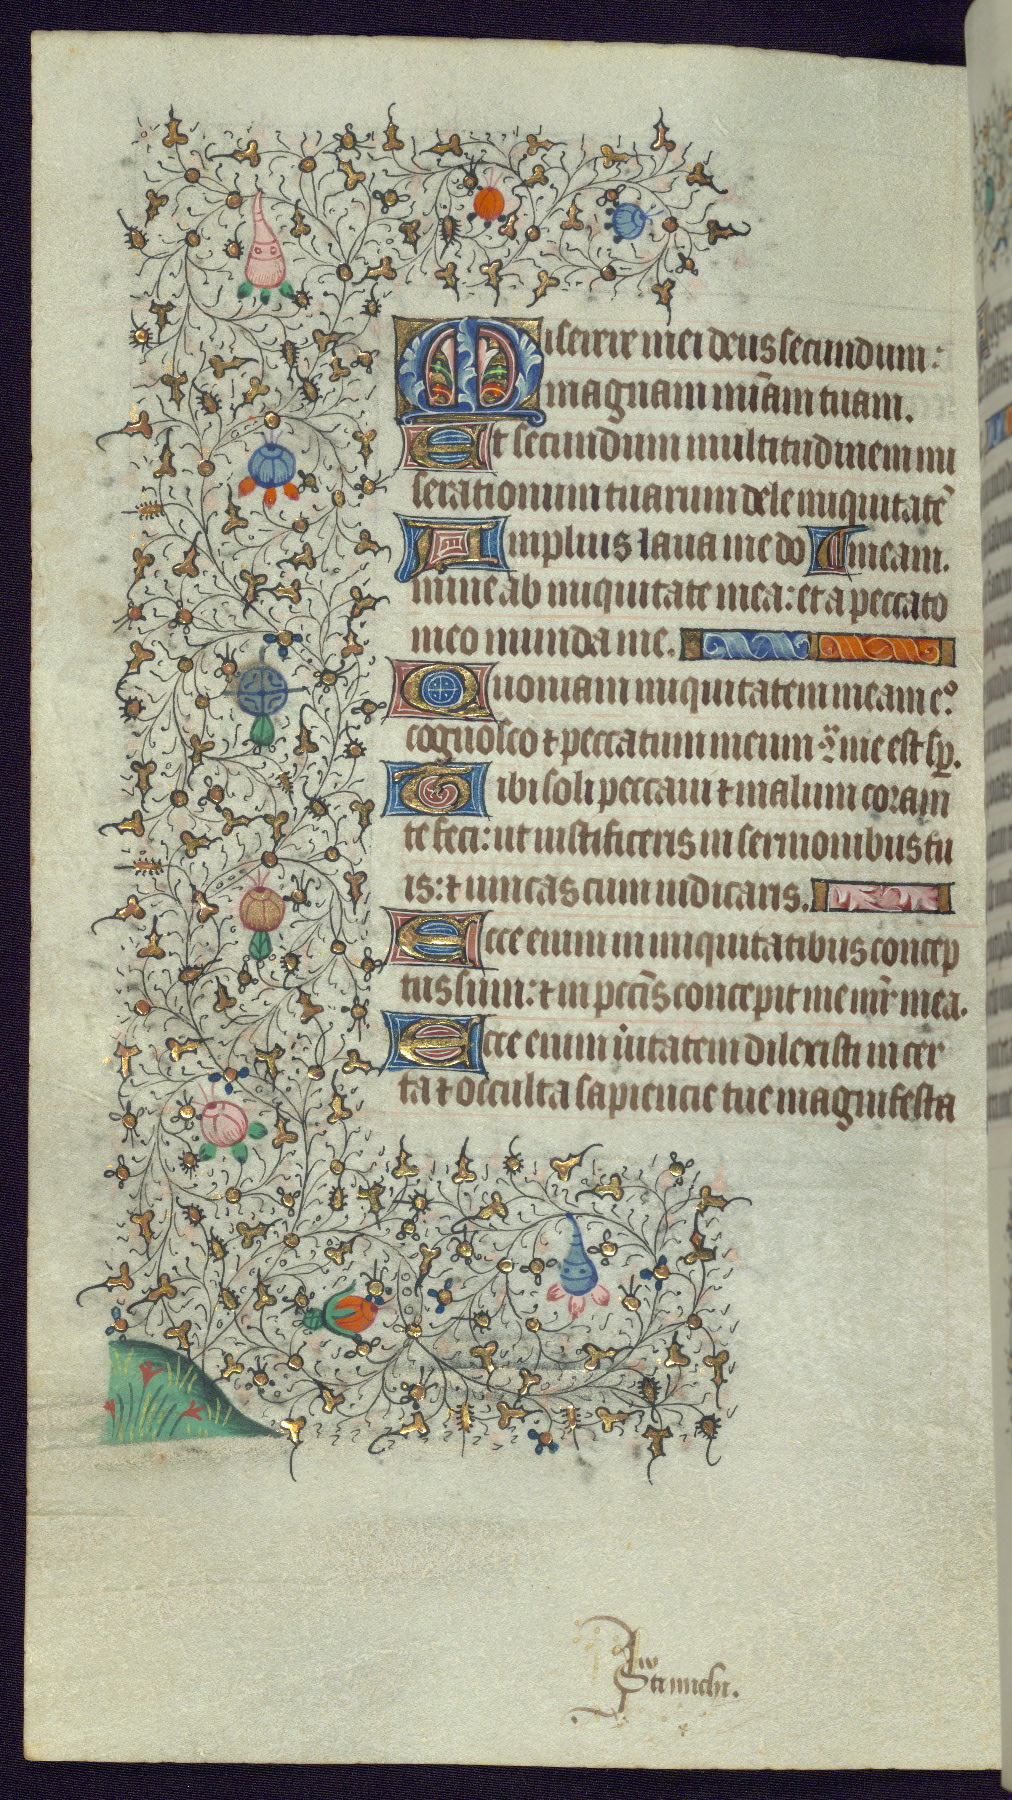 Miserere mei deus secundum:
magnam mīam tuam.
Et secundum multitudinem mi
serationum tuarum dele iniquitatē
Amplius laua me do meam.
mine ab iniquitate mea: et a peccato
meo munda me.
Quoniam iniquitatem meam e°
cognosco ⁊ peccatum meum ꝯ me est sp̄.
Tibi soli peccaui ⁊ malum coram
te feci: ut iustificeris in sermonibus tu
is: ⁊ uincas cum iudicaris.
Ecce enim in iniquitatibus concep
tus sum: ⁊ in pcc̄is concepit me mr̄ mea.
Ecce enim ūitatem dilexisti incer
ta ⁊ occulta sapiencie tue magnifesta